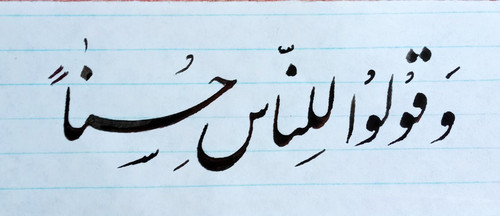 وَ قُولُوا لِلنّاسِ حُسناً